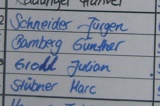 Schneider Jürgen
Bamberg Günther
Groll Julian
Stübner Marc